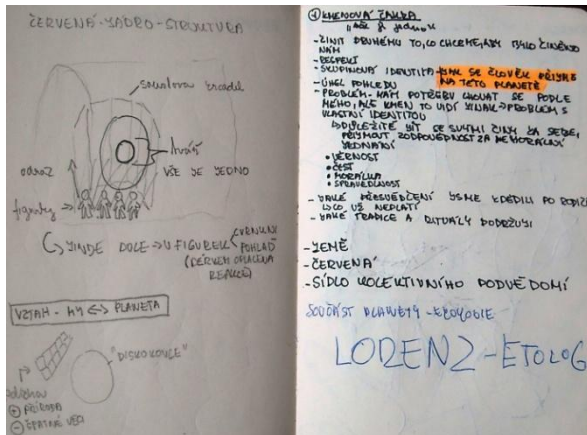 ČERVENÁ-JÁDRO-STRUKTURA
odraz
figurky
VŠE JE JEDNO
JINDE DOLE → U FIGUREK
POHLED
VZTAH - MY <-> PLANETA
"DISKOKOULE"
+ PŘÍRODA
- ŠPATNÉ VĚCI
① KMENOVÁ ČAKRA
"vše je jedno"
- ČINIT DRUHÉMU TO, CO CHCEME, ABY BYLO ČINĚNO
NÁM
- RESPEKT
- SKUPINOVÁ IDENTITA - JAK SE ČLOVĚK PŘIJME
NA TÉTO PLANETĚ
- ÚHEL POHLEDU
- PROBLÉM - MÁM POTŘEBU CHOVAT SE PODLE
MÉHO, ALE KMEN TO VIDÍ JINAK → PROBLÉM S
VLASTNÍ IDENTITOU
DŮLEŽITÉ JÍT SE SVÝMI ČINY ZA SEBE,
PŘIJMOUT ZODPOVĚDNOST ZA NEMORÁLNÍ
JEDNÁNÍ
• VĚRNOST
• ČEST
• MORÁLKA
• SPRAVEDLNOST
- JAKÉ PŘESVĚDČENÍ JSME ZDĚDILI PO RODIČÍ
CO UŽ NEPLATÍ
- JAKÉ TRADICE A RITUÁLY DODRŽUJI
- ZEMĚ
- ČERVENÁ
- SÍDLO KOLEKTIVNÍHO PODVĚDOMÍ
SOUČÁST PLANETY - EKOLOGIE
LORENZ - ETOLOG